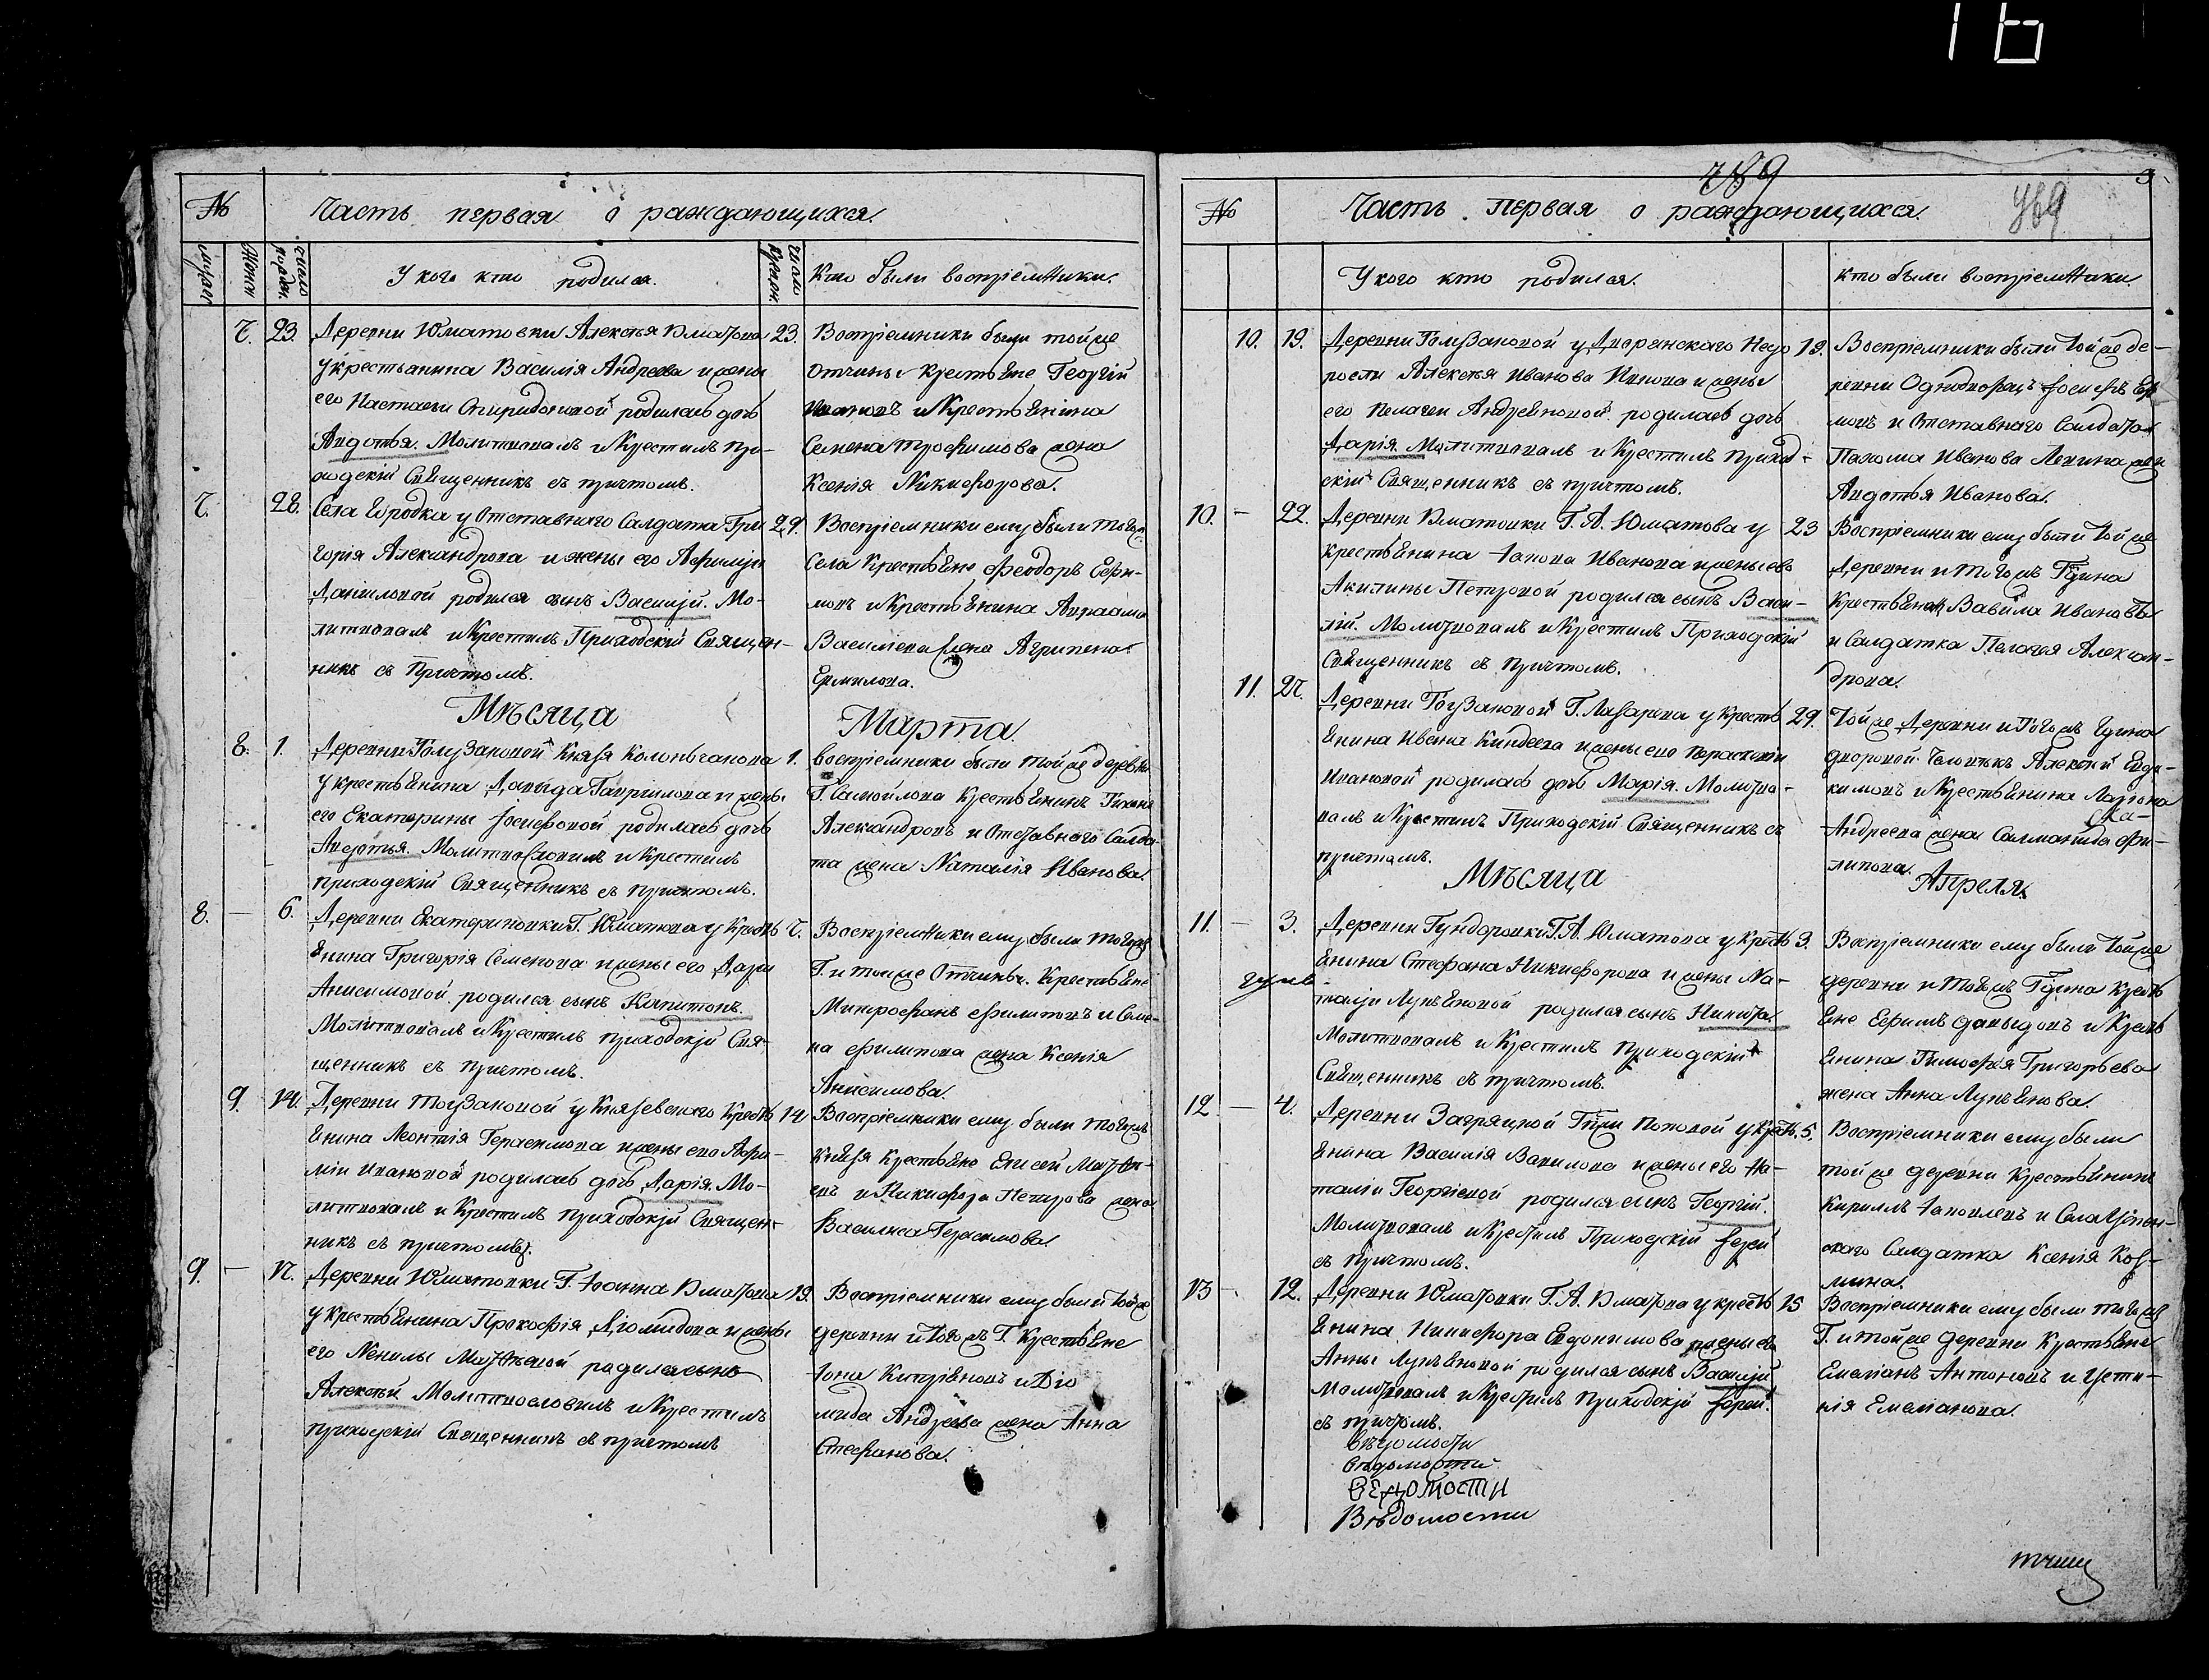 16
№
Часть первая о раждающихся.
мужес
женск
число рожден.
У кого кто родился.
число крещен.
Кто были воспріемники.
7. 23. Деревни Юматовки Алексѣя Юматова 23.
у крестьянина Василія Андреева и жены
его Настасьи Спиридоновой родилась дочь
Авдотья. Молитвовалъ и Крестилъ при-
ходскій Священникъ съ причтомъ.
Воспріемники были тойже
отчины крестьяне Георгій
Ивановъ и Крестьянина
Семена Трофимова жена
Ксенія Никифорова.
7. 28. Села Бродка у Отставнаго Салдата Гри 29.
горія Александрова и жены его Афимьи
Даниловой родился сынъ Василій. Мо-
литвовалъ и Крестилъ Приходскій Священ-
никъ съ Причтомъ.
Воспріемники ему были тогож
Села Крестьяне Феодоръ Ефи-
мовъ и Крестьянина Авраама
Василева жена Агрипена
Ермилова.
Мѣсяца Марта
8. 1. Деревни Голузановой Князя Колончакова 1.
у крестьянина Давида Гаврилова и жены
его Екатерины Іосифовой родилась дочь
Авдотья. Молитвословилъ и Крестилъ
приходскій Священникъ съ причтомъ.
воспріемники были тойже деревни
Г. Самойлова Крестьянинъ Тихонъ
Александровъ и Отставнаго Салда-
та жена Наталія Иванова.
8. — 6. Деревни Екатериновки Г. Юматова у Кресть 7.
янина Григорія Семенова и жены его Дарьи
Анисимовой родился сынъ Капитонъ.
Молитвовалъ и Крестилъ приходскій Свя-
щенникъ съ причтомъ.
Воспріемники ему были тогожъ
Г. и тойже Отчины Крестьяне
Митрофанъ Филиповъ и Семе-
на Филипова жена Ксенія
Анисимова.
9. 14. Деревни Тогузановой у Княжевского Кресть 14
янина Леонтія Герасимова и жены его Афи-
міи Ивановой родилась дочь Дарія. Мо-
литвовалъ и Крестилъ приходскій Священ-
никъ съ причтомъ.
Воспріемники ему были тогожъ
Князя Крестьяне Елисей Матвѣ-
евъ и Никифора Петрова жена
Василиса Герасимова.
9. — 17. Деревни Юматовки Г. Іоанна Юматова 19.
у крестьянина Прокофія Діомидова и жены
его Ненилы Матвѣевой родился сынъ
Алексѣй Молитвословилъ и Крестилъ
приходскій Священникъ съ причтомъ
Воспріемники ему были тойже
деревни и тогожъ Г. Крестьяне
Іона Кипріяновъ и Діо
мида Андреева жена Анна
Стефанова.
789
769
3
№
Часть первая о раждающихся.
У кого кто родился.
кто были воспріемники.
10. 19. Деревни Голузановой у Дворянскаго Недо 19.
росли Алексѣя Иванова Ивнова и жены
его Пелагеи Андреяновой родилась дочь
Дарія. Молитвовалъ и Крестилъ приход-
скій Священникъ съ причтомъ.
Воспріемники были тойже де-
ревни Однодворецъ Іосифъ Ер
мовъ и Отставнаго Салдата
Пахома Иванова Левина жена
Авдотья Иванова.
10. — 22. Деревни Юматовки Г. А. Юматова у 23
крестьянина Іакова Иванова и жены ево
Акилины Петровой родился сынъ Васи-
лій. Молитвовалъ и Крестилъ Приходскій
Священникъ съ причтомъ.
Воспріемники ему были тойже
деревни и тогожъ Гдина
Крестьянинъ Вавила Ивановъ
и Салдатка Пелагея Алексан-
дрова.
11. 27. Деревни Тогузановой Г. Лазарева у кресть 29.
янина Ивана Киндеева и жены ево Парасковіи
Ивановой родилась дочь Марія. Молитво-
валъ и Крестилъ Приходскій Священникъ съ
причтомъ.
Тойже Деревни и тогожъ Гдина
дворовой Человѣкъ Алексѣй Евдо-
кимовъ и Крестьянина Ларіона
Андреева жена Саламанида Фи-
липова.
Мѣсяца Апреля.
11. — 3. Деревни Гундоровки Г. А. Юматова у Кресть 3.
янина Стефана Никифорова и жены На-
таліи Лукьяновой родился сынъ Никита
Молитвовалъ и Крестилъ Приходскій
Священникъ съ причтомъ.
Воспріемники ему были тойже
деревни и тогожъ Гдина Кресть
яне Ефимъ Давыдовъ и Кресть
янина Тимофея Григорьева
жена Анна Лукьянова.
12 — 4. Деревни Загряцкой Гжи Поповой у Кресть 5.
янина Василія Вавилова и жены его На-
таліи Георгіевой родился сынъ Георгій.
Молитвовалъ и Крестилъ Приходскій Іерей
съ Причтомъ.
Воспріемники ему были
тойже деревни Крестьянинъ
Кирилъ Іаковлевъ и
скаго Салдатка Ксенія Коз-
мина.
13 — 12. Деревни Юматовки Г. А. Юматова у кресть 15
янина Никифора Евдокимова и жены ево
Анны Лукьяновой родился сынъ Василій
Молитвовалъ и Крестилъ Приходскій Іерей
съ причтомъ.
Воспріемники ему были тогожъ
Г. и тойже деревни Крестьяне
Емеліанъ Антоновъ и Усти-
нія Емеліанова.
Вѣдомости
Ведомости
ВЕДОМОСТИ
Вѣдомости